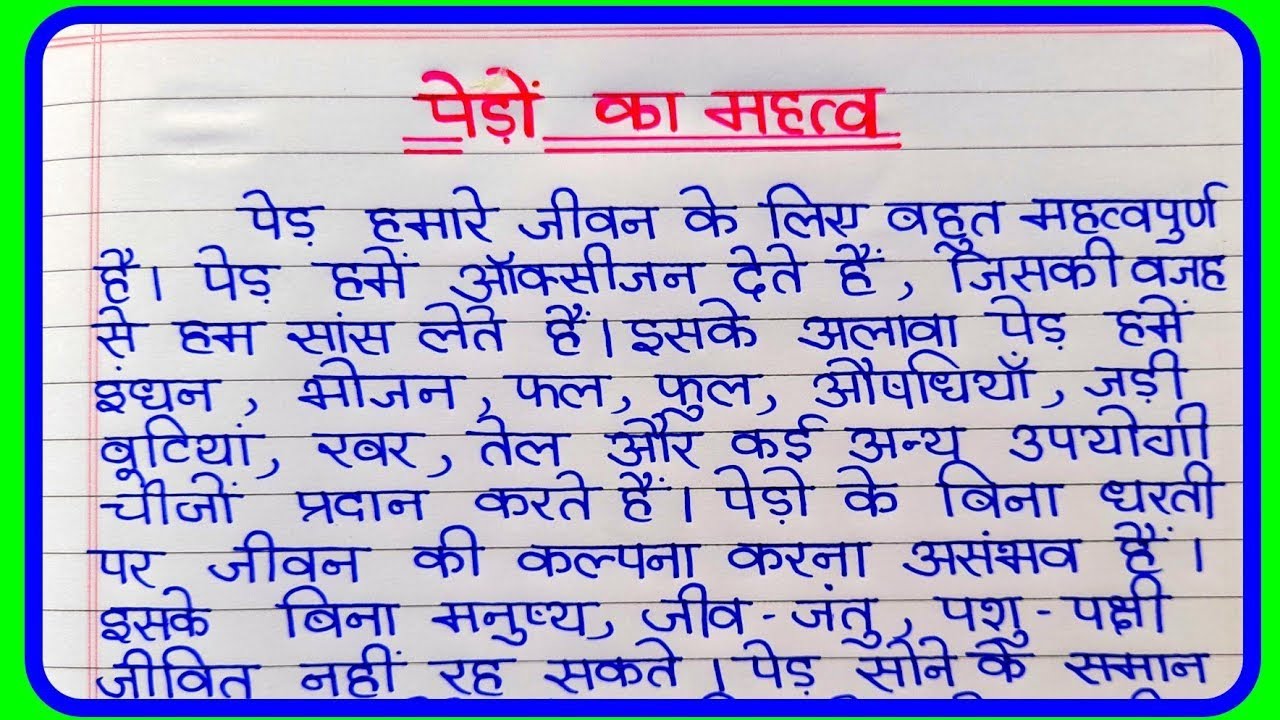 पेड़ों का महत्व
पेड़ हमारे जीवन के लिए बहुत महत्वपुर्ण
है। पेड़ हमें ऑक्सीजन देते हैं, जिसकी वजह
से हम सांस लेते हैं। इसके अलावा पेड़ हमें
इंधन, भोजन, फल, फुल, औषधियाँ, जड़ी
बूटियां, रबर, तेल और कई अन्य उपयोगी
चीजों प्रदान करते हैं। पेड़ो के बिना धरती
पर जीवन की कल्पना करना असंभव हैं।
इसके बिना मनुष्य, जीव-जंतु, पशु-पक्षी
जीवित नहीं रह सकते। पेड़ सोने के समान